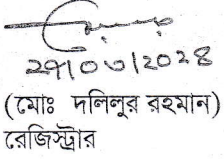 ২৭/০৩/২০২৪
(মোঃ দলিলুর রহমান)
রেজিস্ট্রার